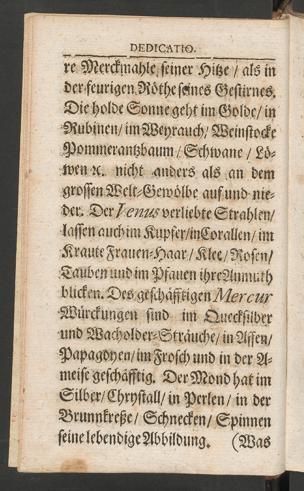 DEDICATIO.
re Merckmahle seiner Hitze / als in
der feurigen Röthe seines Gestirnes.
Die holde Sonne geht im Golde / in
Rubinen / im Weyrauch / Weinstocke
Pommerantzbaum / Schwane / Lö-
wen ꝛc. nicht anders als an dem
grossen Welt-Gewölbe auf und nie-
der. Der Venus verliebte Strahlen /
lassen auch im Kupfer / in Corallen / im
Kraute Frauen-Haar / Klee / Rosen /
Tauben und im Pfauen ihre Anmuth
blicken. Des geschäfftigen Mercur
Würckungen sind im Quecksilber
und Wacholder-Sträuche / in Affen /
Papagoyen / im Frosch und in der A-
meise geschäfftig. Der Mond hat im
Silber / Chrystall / in Perlen / in der
Brunnkreße / Schnecken / Spinnen
seine lebendige Abbildung. (Was